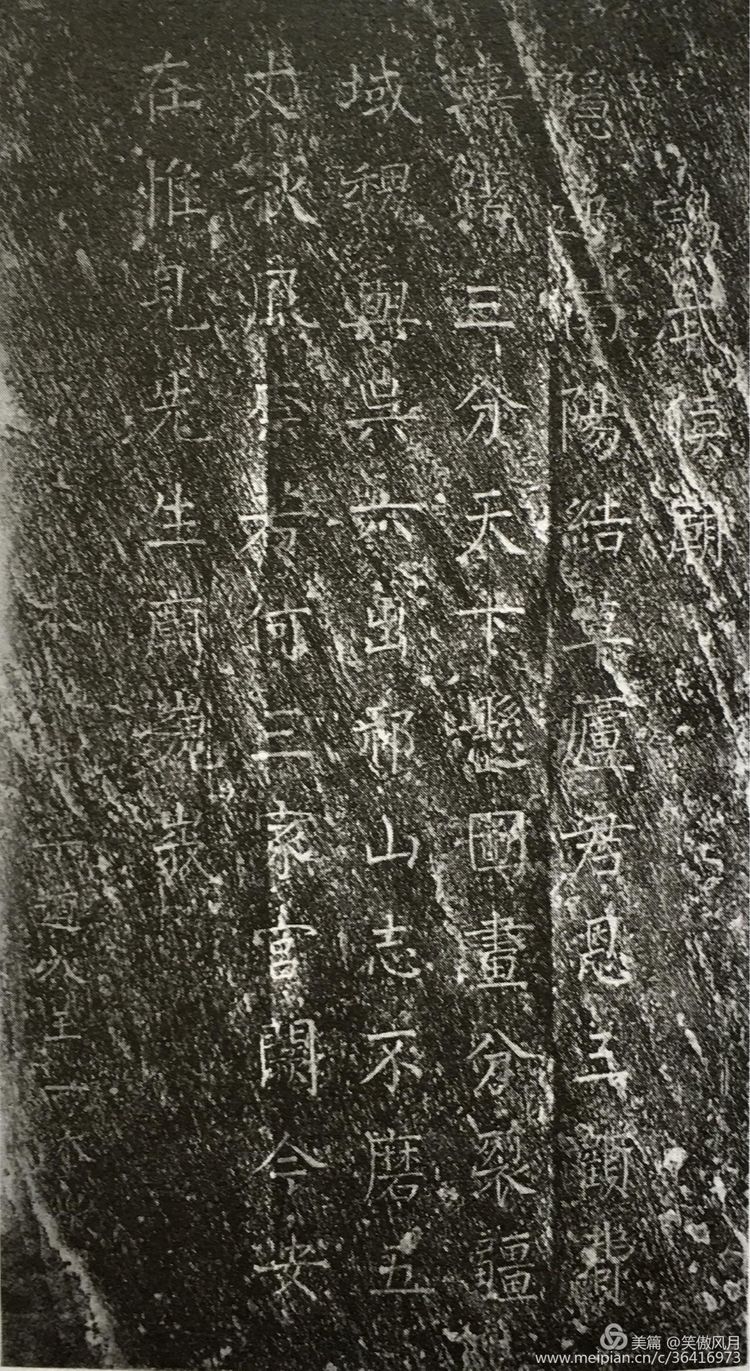 謁武侯廟
隱南陽結草廬君恩三顧費
躇三分天下懸圖畫分裂疆
域魏與吳六出祁山志不磨五
丈秋風奈若何三家宮闕今安
在惟見先生廟巍峩
道
美篇 @笑傲风月
www.meipian.cn/c/36416973